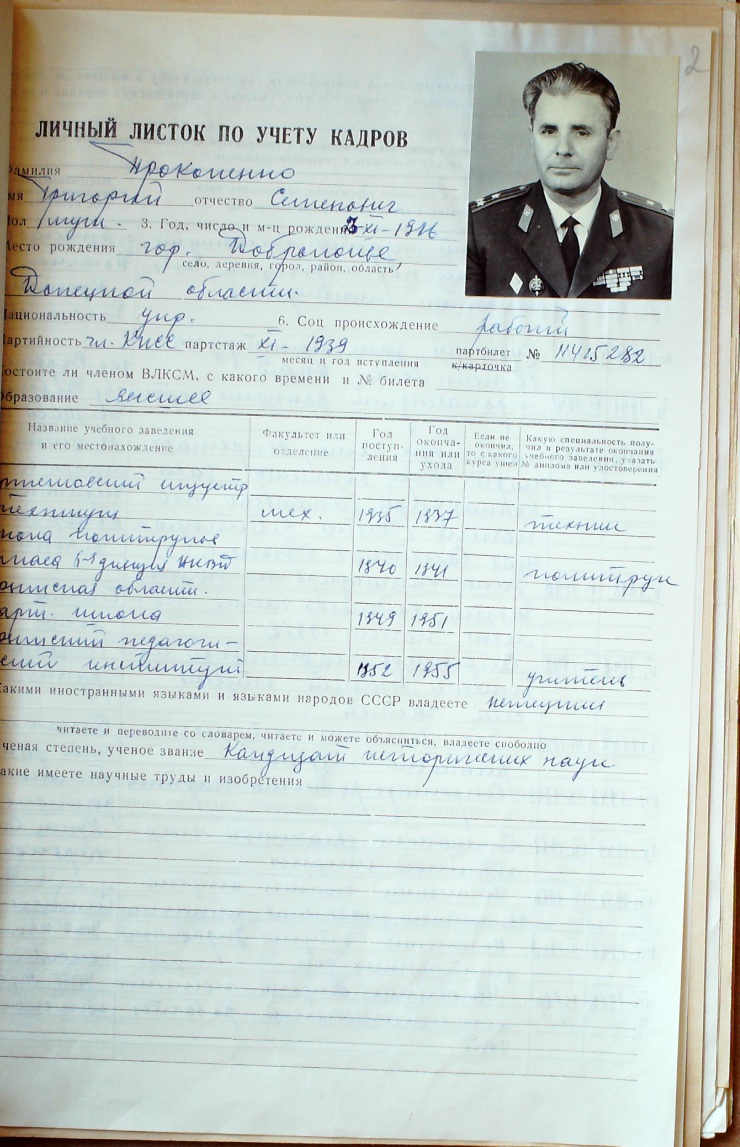 2
ЛИЧНЫЙ ЛИСТОК ПО УЧЕТУ КАДРОВ
Фамилия Прокопенко
имя Григорий отчество Семенович
Пол муж. 3. Год, число и м-ц рождения 7-XI-1916
Место рождения гор. Доброполье
село, деревня, город, район, область
Донецкой области.
Национальность укр. 6. Соц происхождение рабочий
Партийность чл. КПСС партстаж XI - 1939 партбилет № 11415282
месяц и год вступления к/карточка
Состоите ли членом ВЛКСМ, с какого времени и № билета
Образование высшее
Название учебного заведения и его местонахождение
Факультет или отделение
Год поступления
Год окончания или ухода
Если не окончил, то с какого курса ушел
Какую специальность получил в результате окончания учебного заведения, указать № диплома или удостоверения
индустр
техникум мех. 1935 1937 техник
школа политруков
запаса НКВД 1940 1941 политрук
области.
парт. школа 1949 1951
педагоги-
ский институт 1952 1955 учитель
Какими иностранными языками и языками народов СССР владеете немецким
читаете и переводите со словарем, читаете и можете объясниться, владеете свободно
ученая степень, ученое звание Кандидат исторических наук
Какие имеете научные труды и изобретения